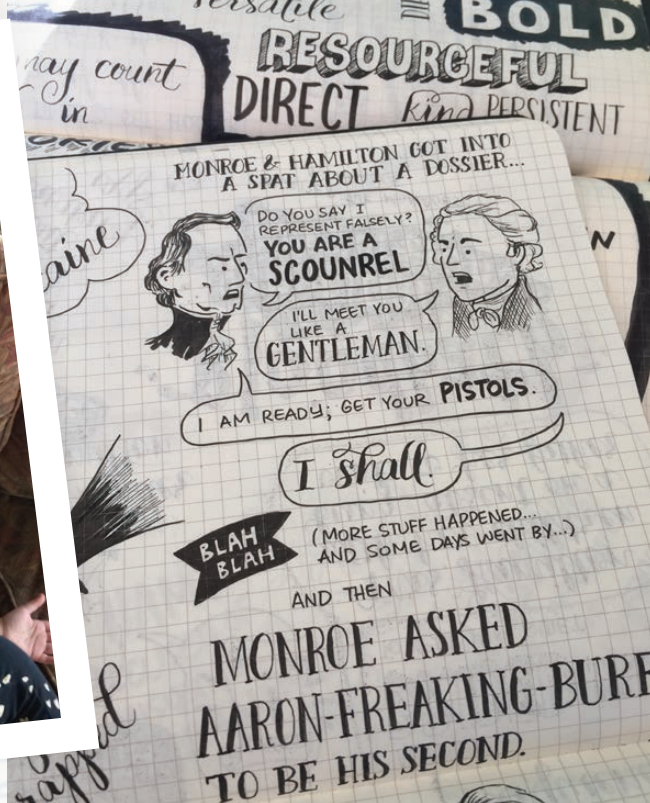 versatile
BOLD
RESOURCEFUL
may count
in
DIRECT kind PERSISTENT
MONROE & HAMILTON GOT INTO
A SPAT ABOUT A DOSSIER...
DO YOU SAY I
REPRESENT FALSELY?
YOU ARE A
SCOUNREL
I'LL MEET YOU
LIKE A
GENTLEMAN.
I AM READY; GET YOUR PISTOLS.
I shall.
BLAH
BLAH
(MORE STUFF HAPPENED...
AND SOME DAYS WENT BY...)
AND THEN
MONROE ASKED
AARON-FREAKING-BURR
TO BE HIS SECOND.